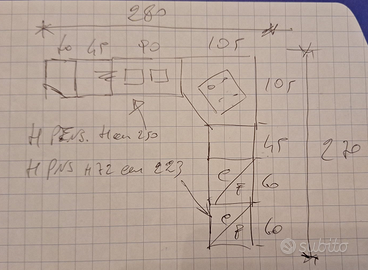 280
60 45 90 105
105
45
270
60
60
H PENS. H cm 250
H PNS H72 cm 223
C
F
C
F
subito